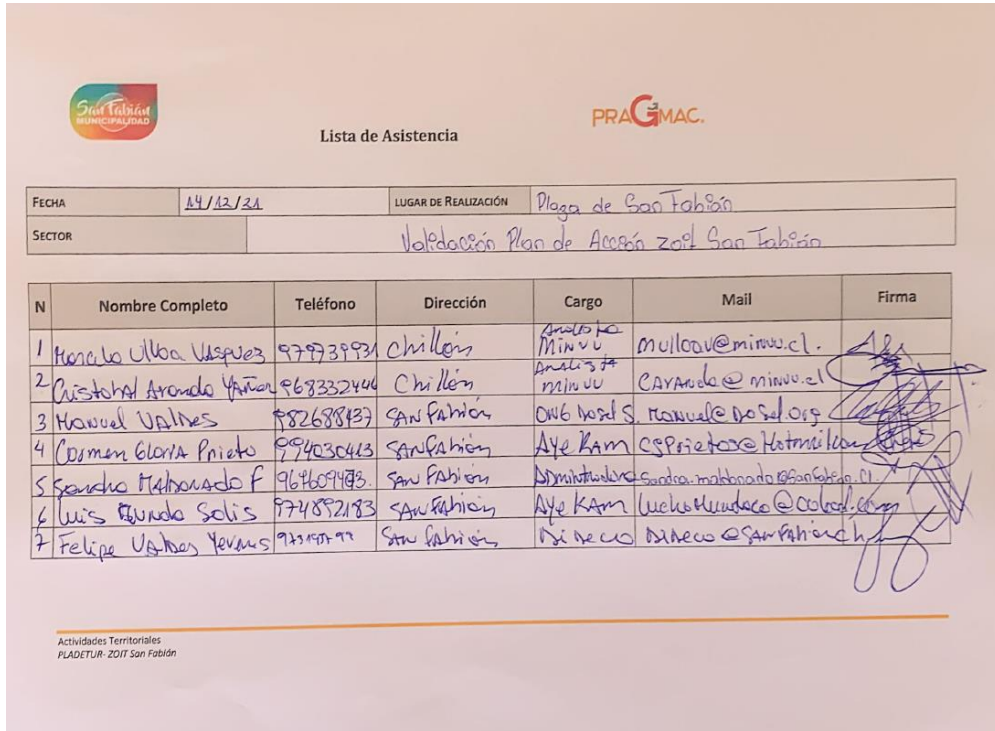 San Fabián
MUNICIPALIDAD
PRAGMAC.
Lista de Asistencia
FECHA 14/12/21 LUGAR DE REALIZACIÓN Plaza de San Fabián
SECTOR Validación Plan de Acción zoit San Fabián
N Nombre Completo Teléfono Dirección Cargo Mail Firma
1 Marcelo Ulloa Vásquez 979739931 Chillán Analista MINVU mulloav@minvu.cl.
2 Cristobal Aranda Yañez 968332446 Chillán Analista minvu CAranda@minvu.cl
3 Manuel VALDES 982688437 SAN FAbián ONG Dosel S. Manuel@Dosel.Org
4 Carmen GLORIA Prieto 994030413 SANFAbián Aye KAM
5 Sandra MALDONADO F SAN FAbián sandra.maldonado@sanfabian.cl.
6 Luis Solis 974892183 SAN FAbián Aye KAM
7 Felipe VALDES SAN FAbián DiDeco
Actividades Territoriales
PLADETUR- ZOIT San Fabián